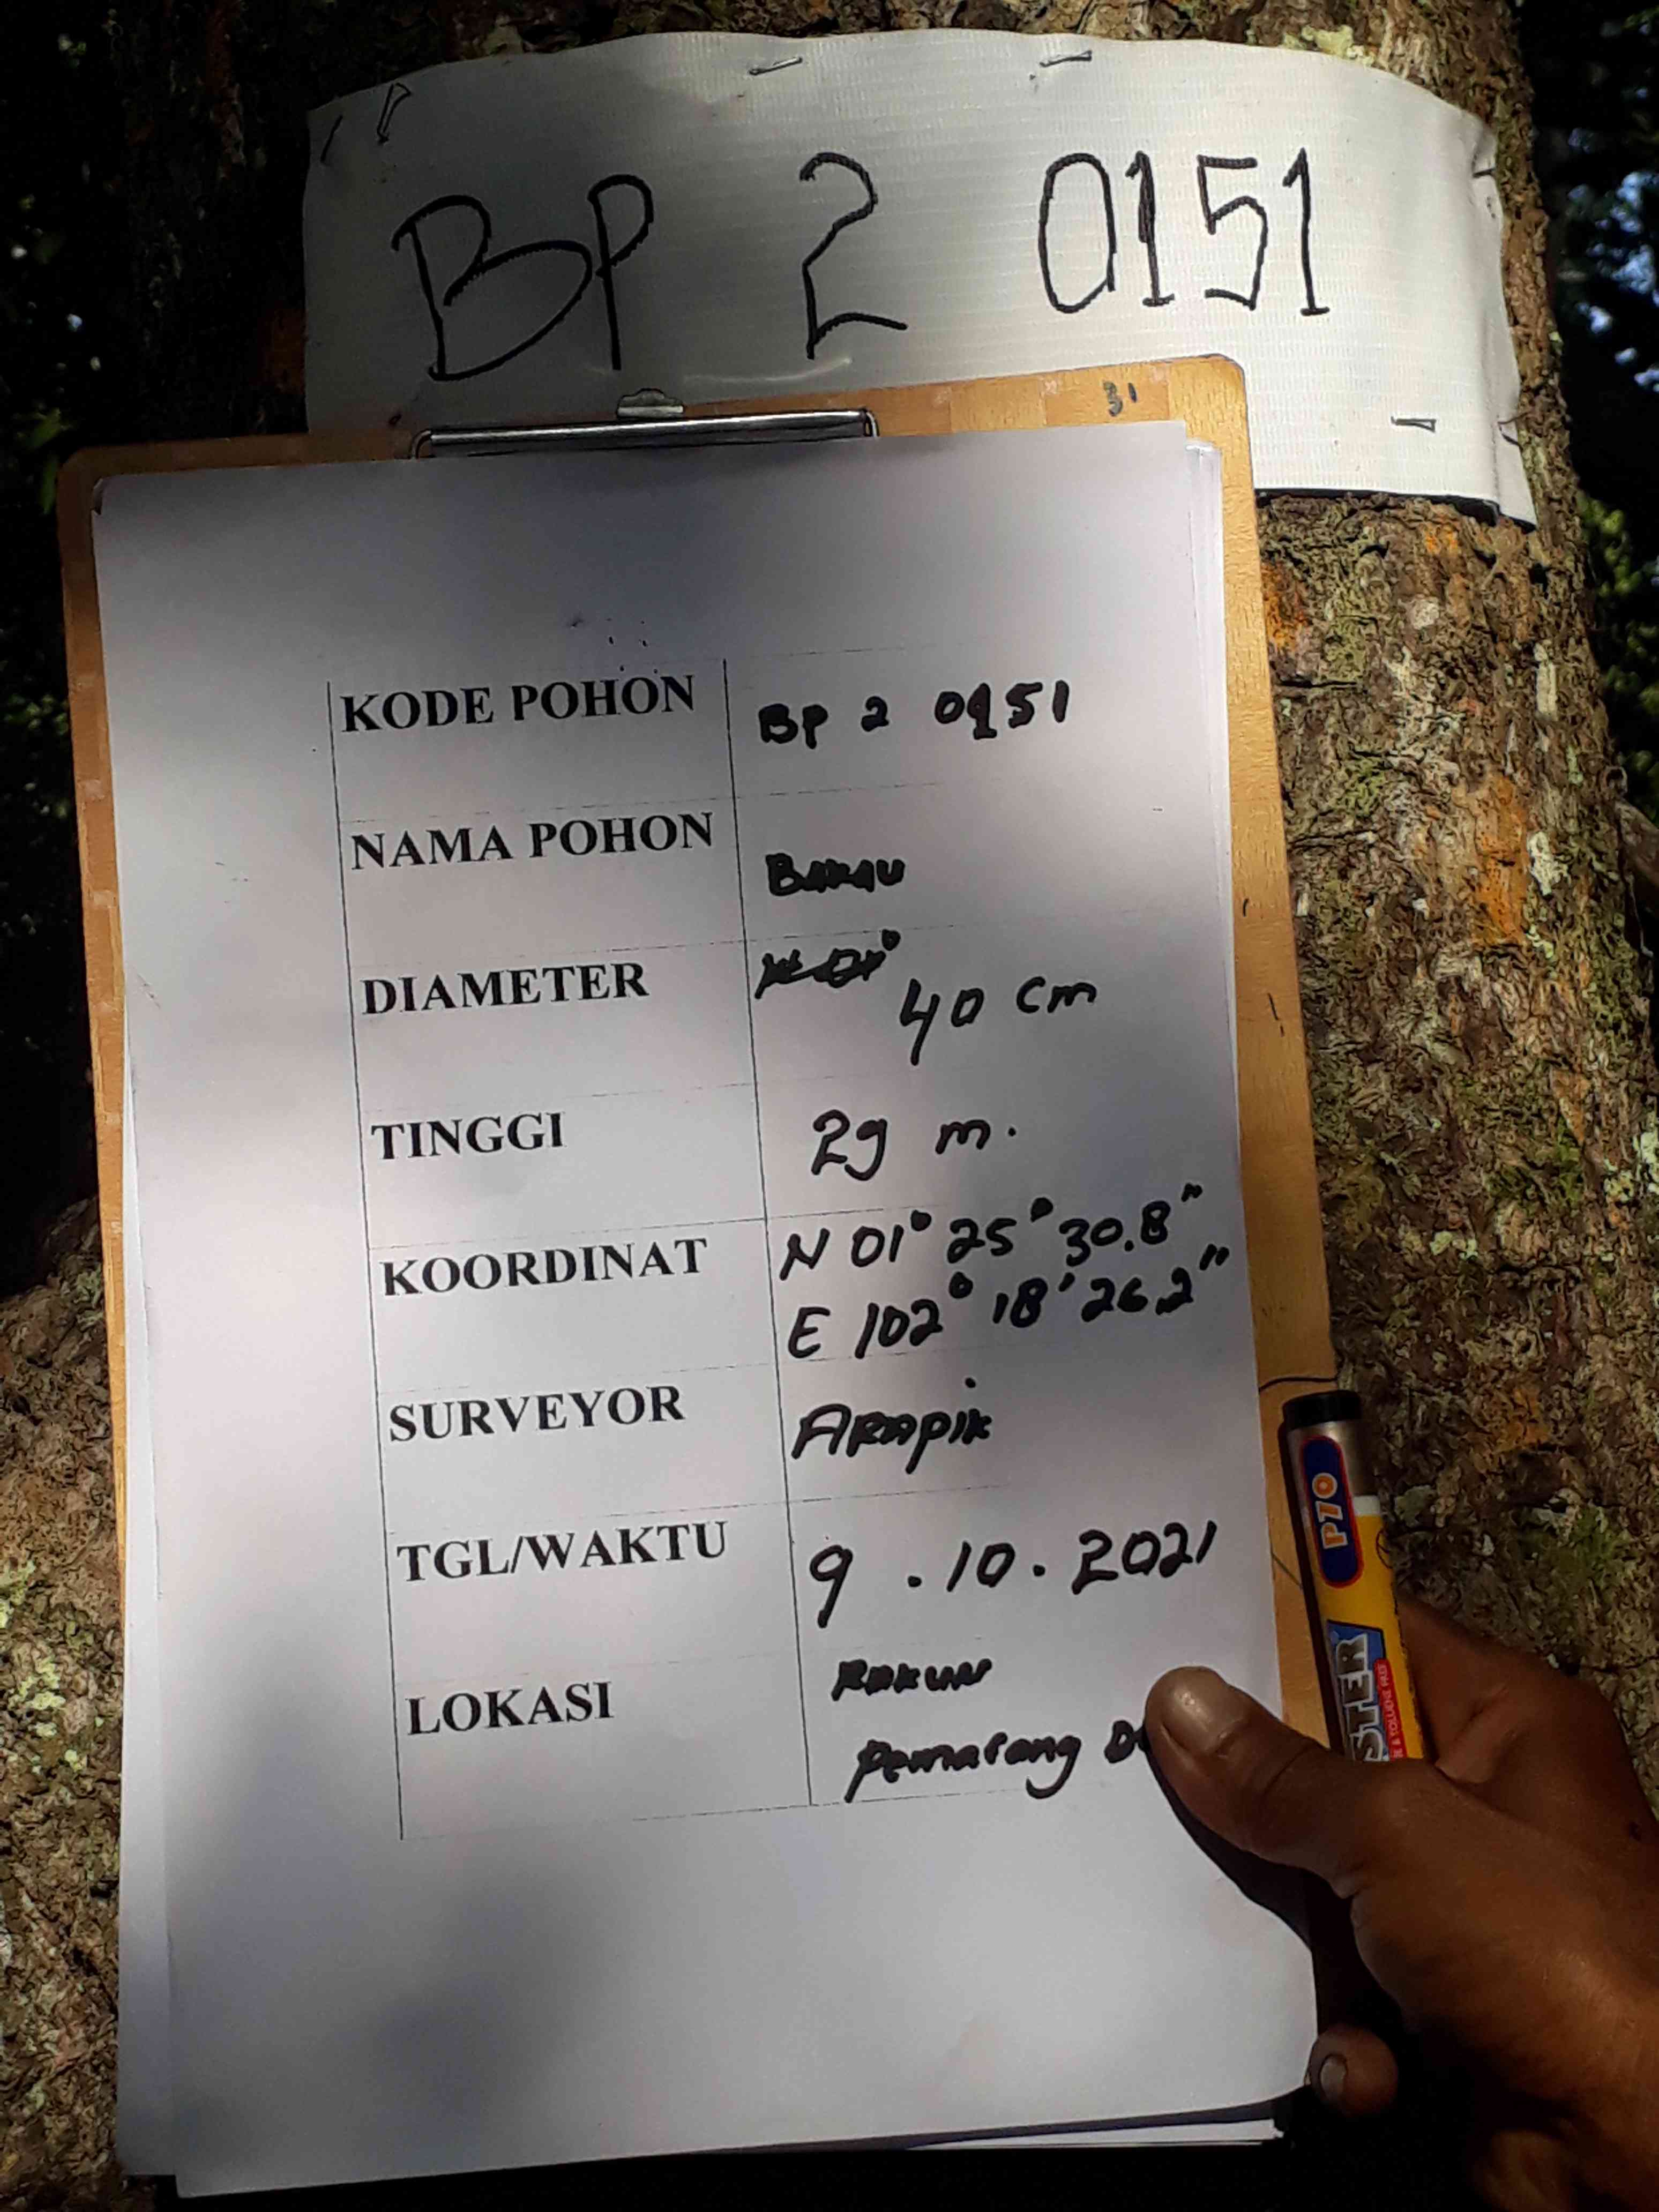 BP 2 0151
31
KODE POHON BP 2 0151
NAMA POHON BAKAU
DIAMETER 40 cm
TINGGI 29 m.
KOORDINAT N 01° 25° 30.8"
E 102° 18' 26.2"
SURVEYOR ARAPIK
TGL/WAKTU 9 . 10 . 2021
LOKASI
Pematang
P70
STER